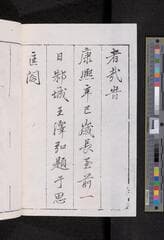 者哉昔
康熙辛巳歲長至前一
日郟城王澤弘題于思
匡閣